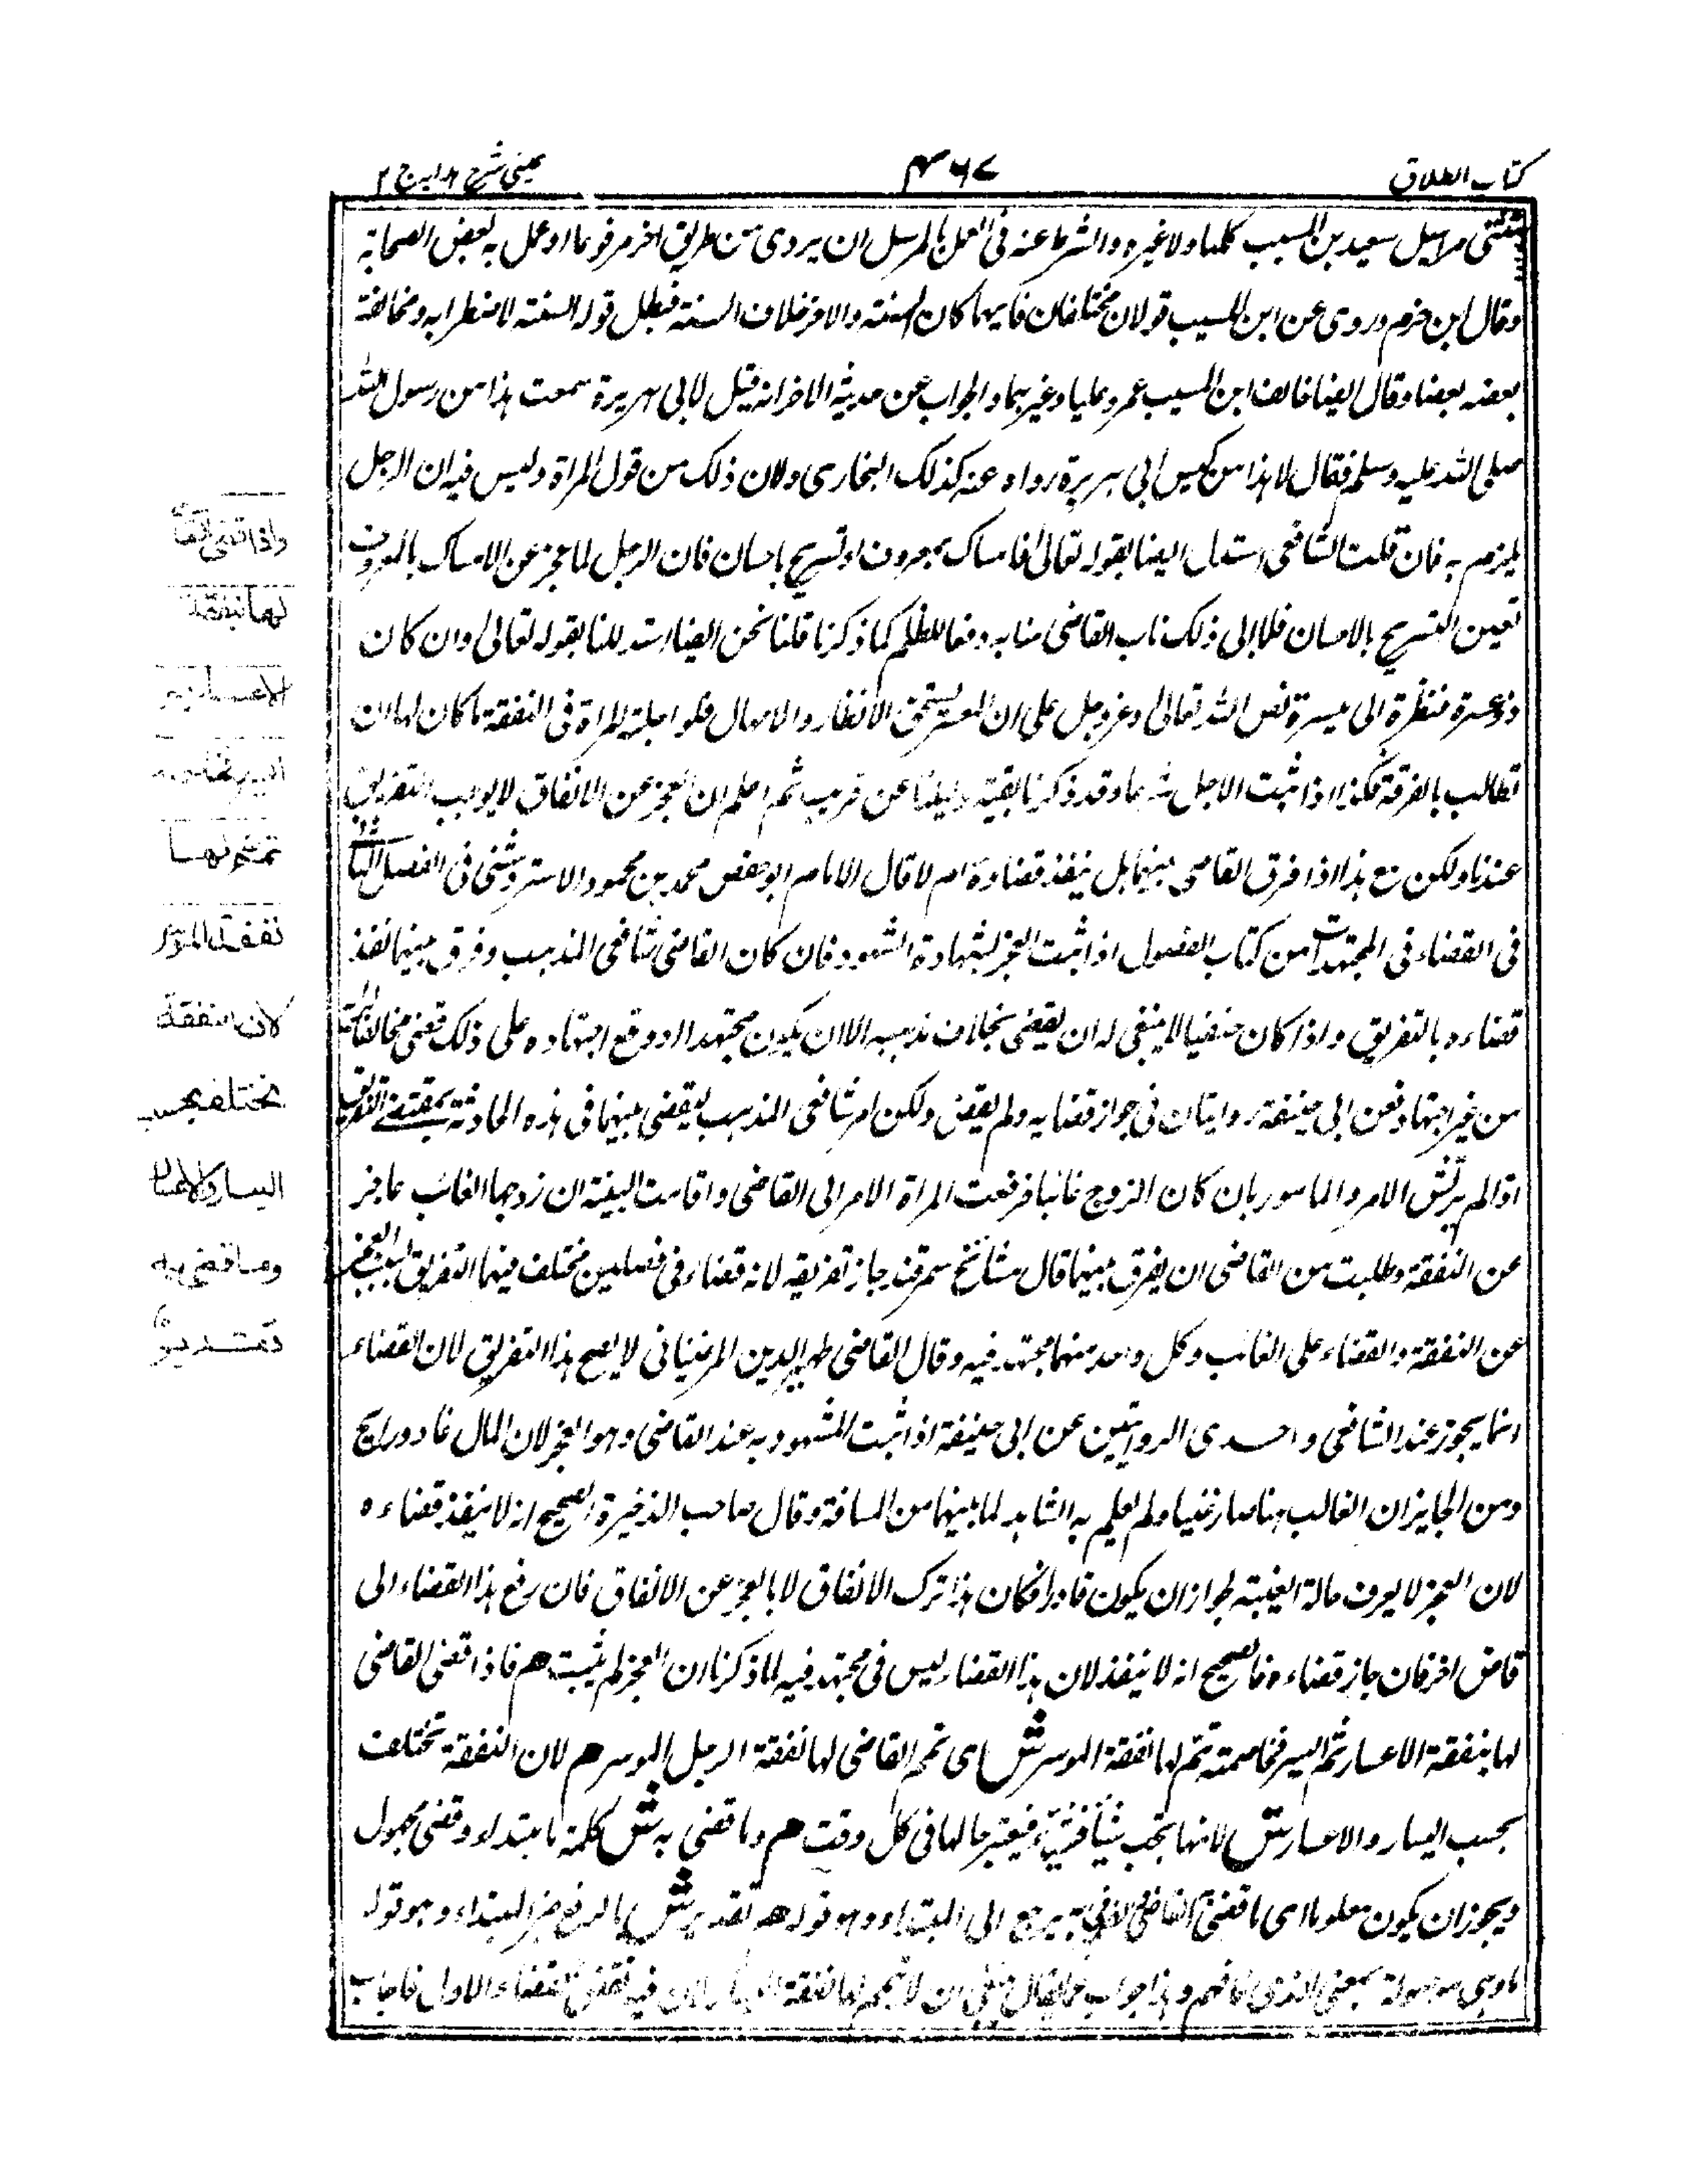 كتاب الطلاق
۴۶۷
عينى شرح هدايه ج ۲
مراسيل سعيد بن المسيب كلها ولا غيره والشرط عنه فى العمل بالمرسل ان يروى من طريق اخر مرفوعا او عمل به بعض الصحابة
وقال ابن حزم وروى عن ابن المسيب قولان مختلفان فايهما كان السنة والاخر خلاف السنة فبطل قوله السنة لاضطرابه ومخالفة
بعضه بعضا وقال ايضا خالف ابن المسيب عمر وعليا وغيرهما والجواب عن حديثه الاخر انه قيل لابى هريرة سمعت هذا من رسول الله
صلى الله عليه وسلم فقال لا هذا من كيس ابى هريرة رواه عنه كذلك البخارى ولان ذلك من قول المراة وليس فيه ان الرجل
يلزم به فان قلت الشافعى استدل ايضا بقوله تعالى فامساك بمعروف او تسريح باحسان فان الرجل لما عجز عن الامساك بالمعروف
تعين التسريح بالاحسان فلما ابى ذلك ناب القاضى منابه دفعا للظلم كما ذكرنا قلنا نحن ايضا استدللنا بقوله تعالى وان كان
ذو عسرة فنظرة الى ميسرة نص الله تعالى وعز وجل على ان المعسر يستحق الانظار والامهال فلو اجلته المراة فى النفقة ما كان لها ان
تطالب بالفرقة فكذا اذا ثبت الاجل شرعا وقد ذكرنا بقية دليلنا عن قريب ثم اعلم ان العجز عن الانفاق لا يوجب التفريق
عندنا ولكن مع هذا اذا فرق القاضى بينهما هل ينفذ قضاءه ام لا قال الامام ابو حفص محمد بن محمود الاستروشنى فى الفصل الثانى
فى القضاء فى المجتهدات من كتاب الفصول اذا ثبت العجز بشهادة الشهود فان كان القاضى شافعى المذهب وفرق بينهما نفذ
قضاءه بالتفريق واذا كان حنفيا لا ينبغى له ان يقضى بخلاف مذهبه الا ان يكون مجتهدا ووقع اجتهاده على ذلك قضى مخالفا
من غير اجتهاد فعن ابى حنيفة روايتان فى جواز قضايه ولم يقض ولكن امر شافعى المذهب ليقضى بينهما فى هذه الحادثة بمقتضى التفريق
اذا لم يرتش الامر والمامور بان كان الزوج غائبا فرفعت المراة الامر الى القاضى واقامت البينة ان زوجها الغائب عاجز
عن النفقة وطلبت من القاضى ان يفرق بينهما قال مشائخ سمرقند جاز تفريقه لانه قضاء فى فصلين مختلف فيهما التفريق بسبب العجز
عن النفقة والقضاء على الغائب وكل واحد منهما مجتهد فيه وقال القاضى ظهير الدين المرغينانى لا يصح هذا التفريق لان القضاء
انما يجوز عند الشافعى واحدى الروايتين عن ابى حنيفة اذا ثبت المشهود به عند القاضى وهو العجز لان المال غاد ورايح
ومن الجايز ان الغائب هنا صار غنيا ولم يعلم به الشاهد لما بينهما من المسافة وقال صاحب الذخيرة الصحيح انه لا ينفذ قضاءه
لان العجز لا يعرف حالة الغيبة لجواز ان يكون قادرا فكان هذا ترك الانفاق لا بالعجز عن الانفاق فان رفع هذا القضاء الى
قاض اخر فان جاز قضاءه فالصحيح انه لا ينفذ لان هذا القضاء ليس فى مجتهد فيه لما ذكرنا ان العجز لم يثبت هم فاذا قضى القاضى
لها بنفقة الاعسار ثم ايسر فخاصمته تمم لها نفقة الموسر ش اى تمم القاضى لها نفقة الرجل الموسر هم لان النفقة تختلف
بحسب اليسار والاعسار ش لانها تجب شيئا فشيئا فيعتبر حالها فى كل وقت هم وما قضى به ش كلمة ما مبتداء وقضى مجهول
ويجوز ان يكون معلوما اى ما قضى القاضى به يرجع الى المبتداء وهو قوله هم تقدير ش بالرفع خبر المبتداء وهو قوله
ما وهى موصولة بمعنى الذى فافهم وهذا جواب عما يقال ينبغى ان لا تتمم لها نفقة اليسار لان فيه نقض القضاء الاول فاجاب
واذا قضى القا
لها بنفقة
الاعسار ثم
ايسر فخاصمته
تمم لها
نفقة الموسر
لان النفقة
تختلف بحسب
اليسار والاعسار
وما قضى به
تقدير